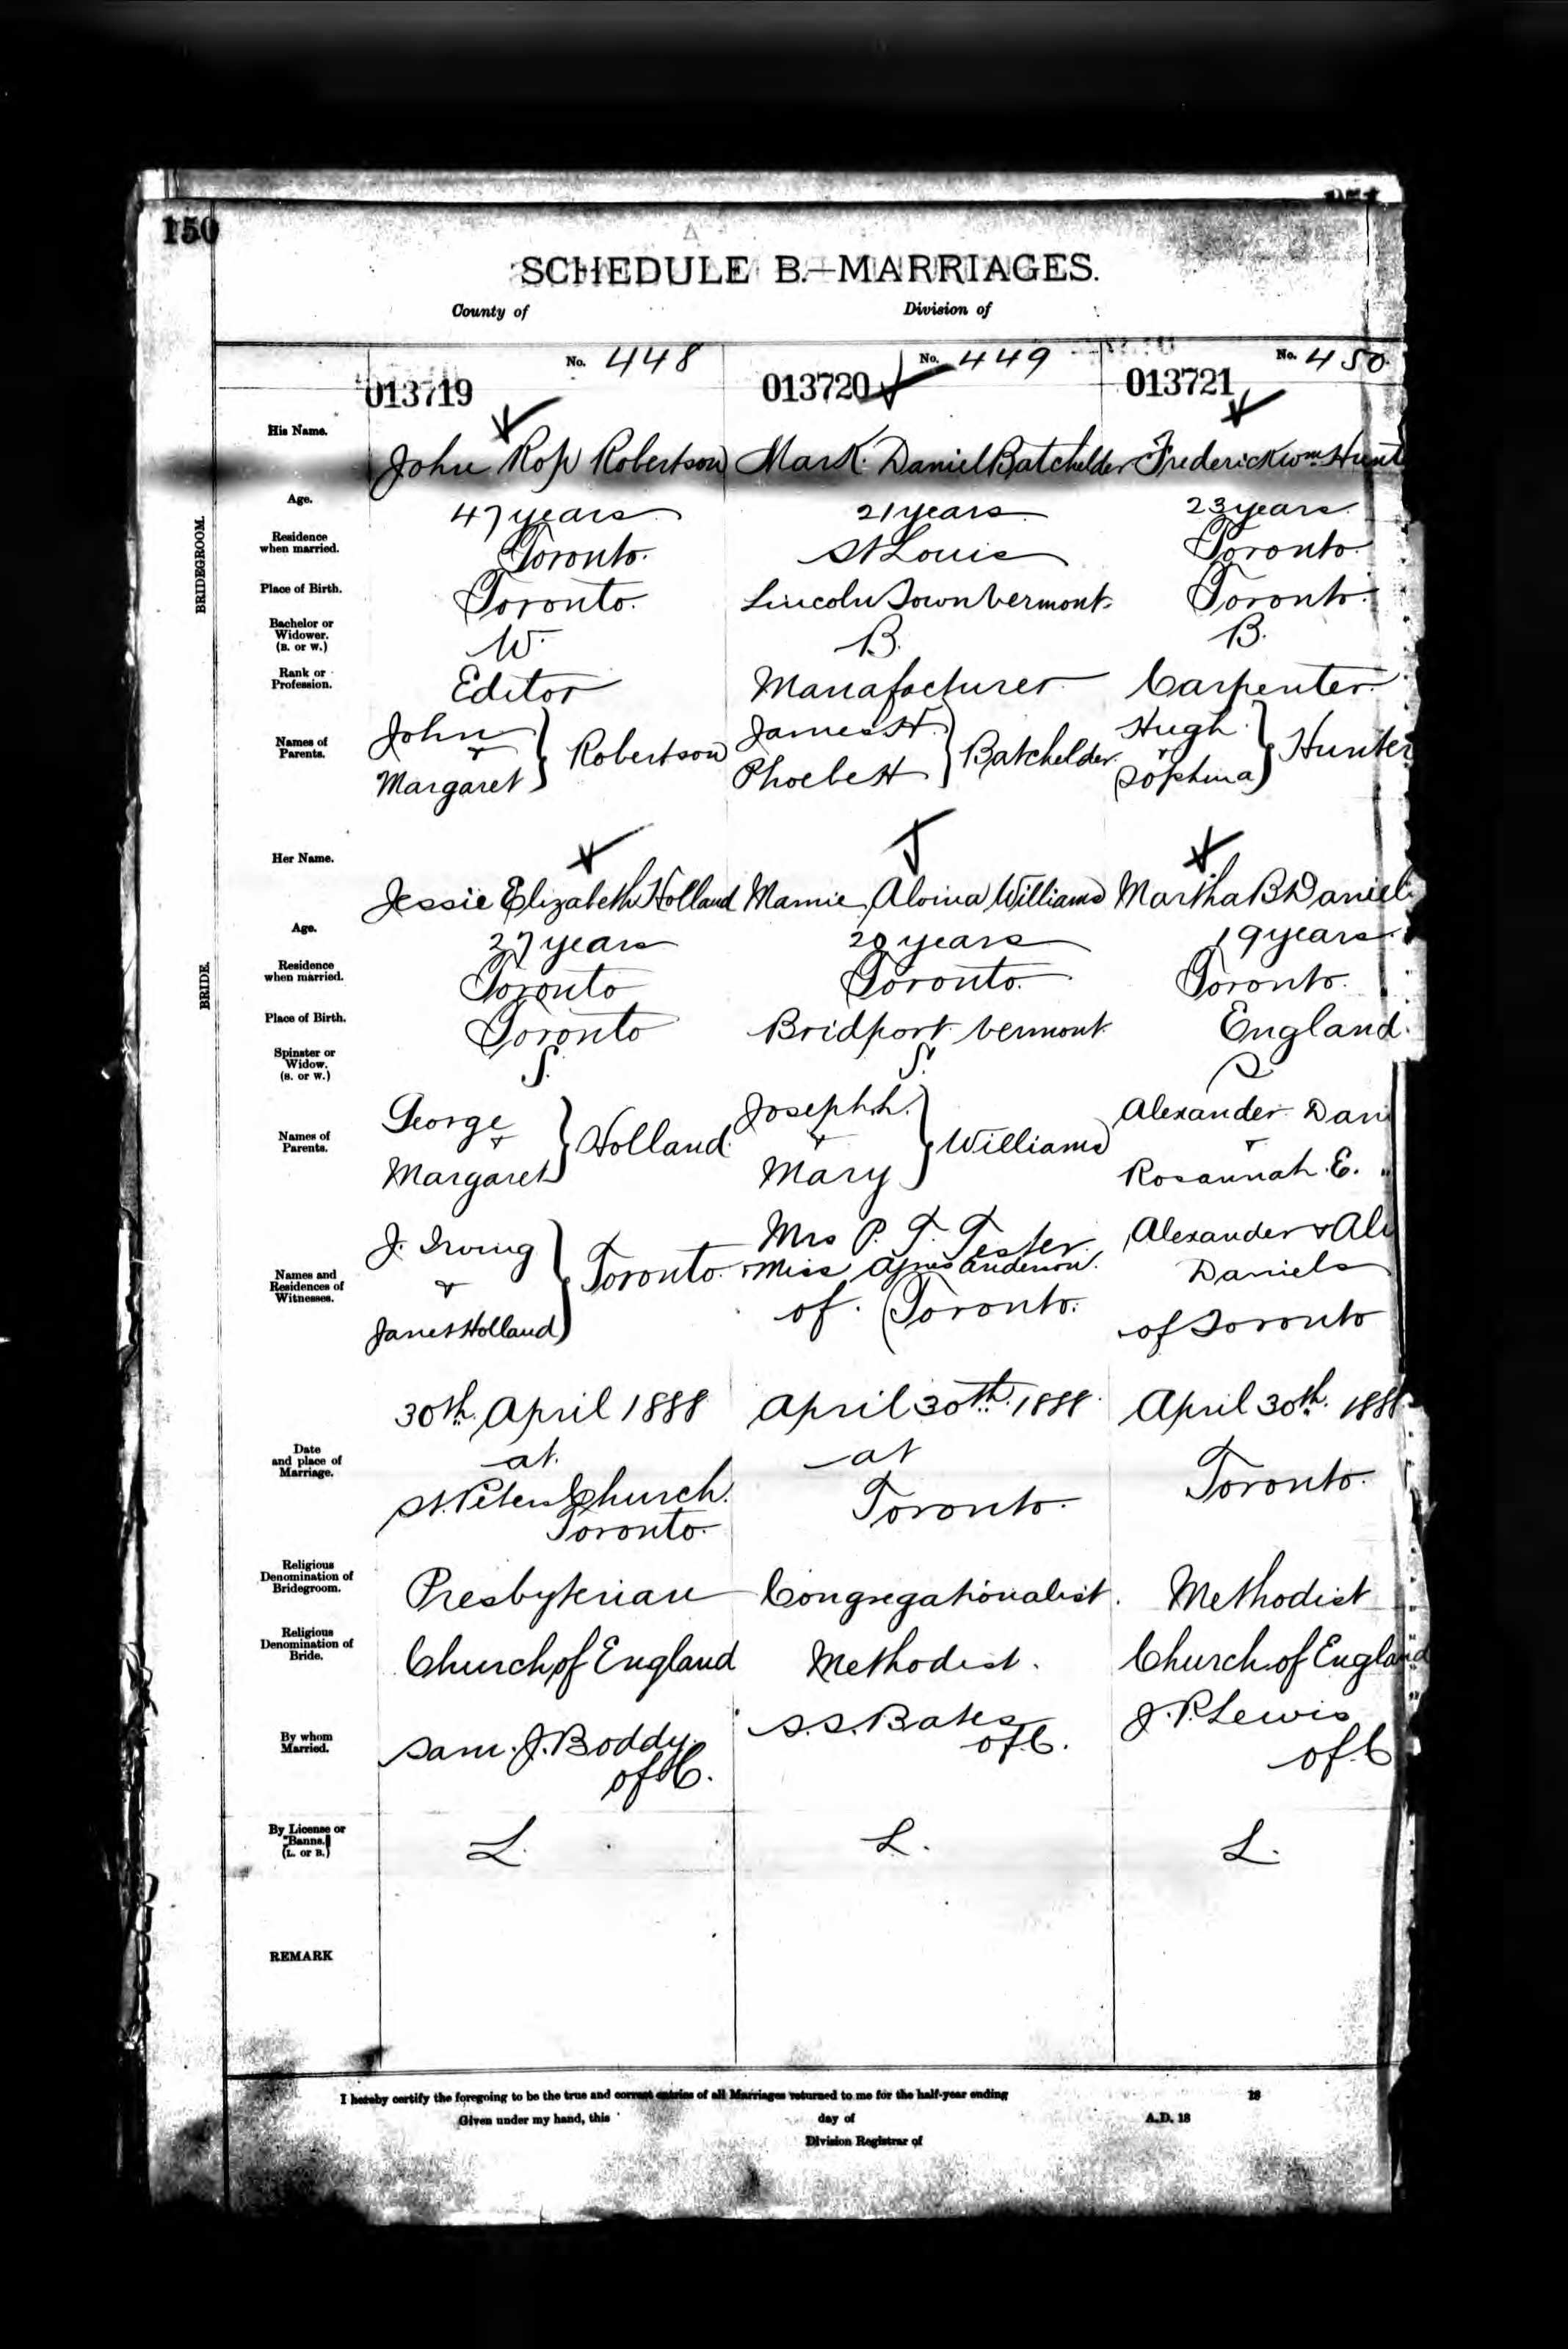 150
SCHEDULE B.—MARRIAGES.
County of
Division of
No. 448
No. 449
No. 450
013719
013720
013721
BRIDEGROOM.
His Name.
John Ross Robertson
Mark Daniel Batchelder
Frederick Wm Hunt
Age.
47 years
21 years
23 years
Residence when married.
Toronto.
St Louis
Toronto.
Place of Birth.
Toronto.
Lincoln Town Vermont.
Toronto.
Bachelor or Widower. (B. or W.)
W.
B.
B.
Rank or Profession.
Editor
Manafacturer
Carpenter.
Names of Parents.
John & Margaret } Robertson
James H. & Phoebe H } Batchelder.
Hugh & Sophina } Hunter
BRIDE.
Her Name.
Jessie Elizabeth Holland
Mamie Alvina Williams
Martha B Daniel
Age.
27 years
20 years
19 years
Residence when married.
Toronto
Toronto.
Toronto.
Place of Birth.
Toronto
Bridport Vermont.
England.
Spinster or Widow. (S. or W.)
S.
S.
S
Names of Parents.
George & Margaret } Holland
Joseph L. & Mary } Williams
Alexander Dan
&
Rosannah E. "
Names and Residences of Witnesses.
J. Irving & Janet Holland } Toronto.
Mrs P. T. Tester.
& Miss Agnes Anderson.
of Toronto.
Alexander & Ali
Daniels
of Toronto
Date and place of Marriage.
30th. April 1888
at.
St. Peters Church.
Toronto.
April 30th. 1888.
at
Toronto.
April 30th. 1888
Toronto.
Religious Denomination of Bridegroom.
Presbyterian
Congregationalist.
Methodist
Religious Denomination of Bride.
Church of England
Methodist.
Church of England
By whom Married.
Sam. J. Boddy.
of C.
S. S. Bates
of C.
J. P. Lewis
of C
By License or Banns. (L. or B.)
L.
L.
L.
REMARK
I hereby certify the foregoing to be the true and correct entries of all Marriages returned to me for the half-year ending 18
Given under my hand, this day of A.D. 18
Division Registrar of